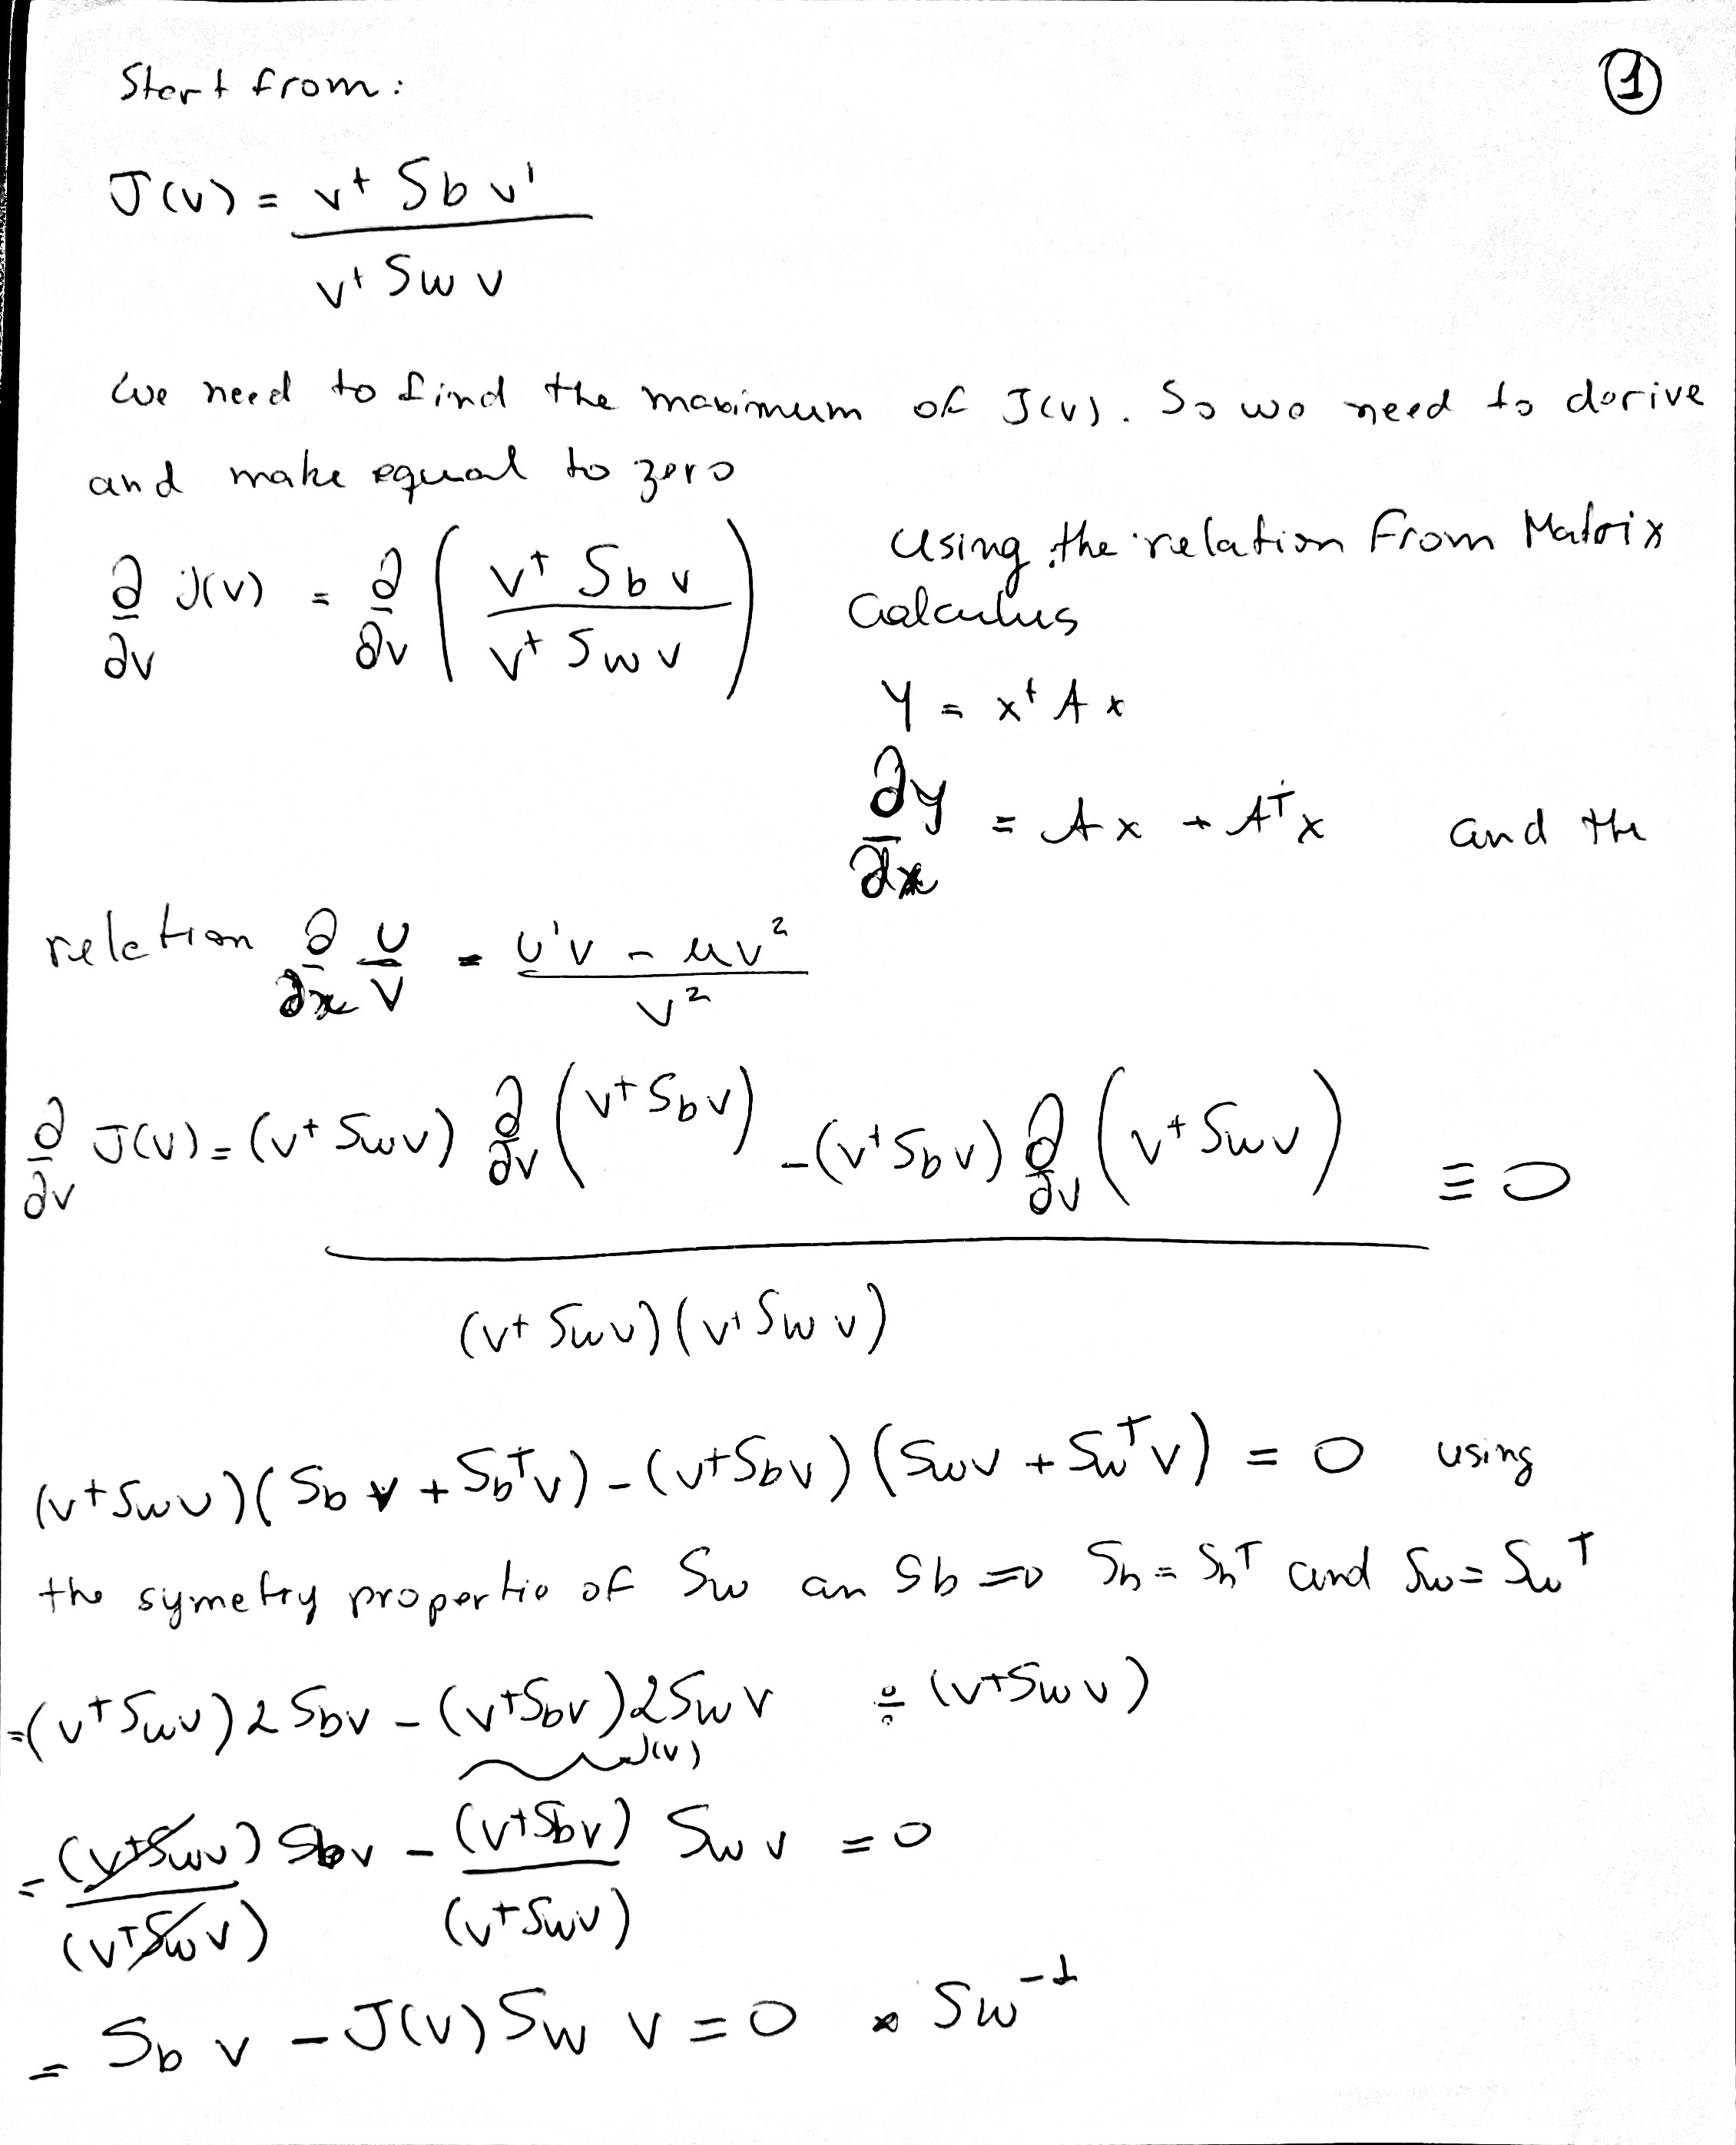 Start from:
①
J(v) = v^t Sb v'
v^t Sw v
We need to find the maximum of J(v). So we need to derive
and make equal to zero
∂/∂v J(v) = ∂/∂v ( v^t Sb v / v^t Sw v )
Using the relation from Matrix
Calculus
Y = x^t A x
∂y/∂x = Ax + A^T x and the
relation ∂/∂x U/V = (U'v - uv²) / v²
∂/∂v J(v) = (v^t Sw v) ∂/∂v (v^t Sb v) - (v^t Sb v) ∂/∂v (v^t Sw v) ≡ 0
(v^t Sw v)(v^t Sw v)
(v^t Sw v)(Sb v + Sb^T v) - (v^t Sb v)(Sw v + Sw^T v) = 0 using
the symetry propertie of Sw an Sb => Sb = Sb^T and Sw = Sw^T
=(v^t Sw v) 2 Sb v - (v^t Sb v) 2 Sw v ÷ (v^t Sw v)
J(v)
= (v^t Sw v)/(v^T Sw v) Sb v - (v^t Sb v)/(v^t Sw v) Sw v = 0
= Sb v - J(v) Sw v = 0 × Sw^-1